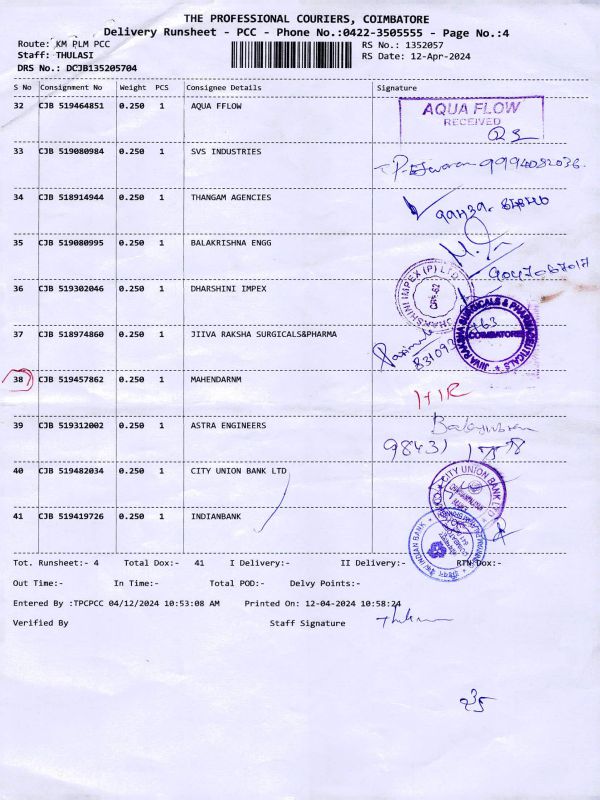 THE PROFESSIONAL COURIERS, COIMBATORE
Delivery Runsheet - PCC - Phone No.:0422-3505555 - Page No.:4
Route: KM PLM PCC RS No.: 1352057
Staff: THULASI RS Date: 12-Apr-2024
DRS No.: DCJB135205704
S No Consignment No Weight PCS Consignee Details Signature
32 CJB 519464851 0.250 1 AQUA FFLOW AQUA FLOW
RECEIVED
33 CJB 519080984 0.250 1 SVS INDUSTRIES 9994082036.
34 CJB 518914944 0.250 1 THANGAM AGENCIES
35 CJB 519080995 0.250 1 BALAKRISHNA ENGG
9047067017
36 CJB 519302046 0.250 1 DHARSHINI IMPEX DHARSHINI IMPEX (P) LTD
37 CJB 518974860 0.250 1 JIIVA RAKSHA SURGICALS&PHARMA JIIVA RAKSHA SURGICALS & PHARMACEUTICALS
COIMBATORE
38 CJB 519457862 0.250 1 MAHENDARNM
39 CJB 519312002 0.250 1 ASTRA ENGINEERS
98431
40 CJB 519482034 0.250 1 CITY UNION BANK LTD CITY UNION BANK LTD
41 CJB 519419726 0.250 1 INDIANBANK INDIAN BANK
Tot. Runsheet:- 4 Total Dox:- 41 I Delivery:- II Delivery:- RTN Dox:-
Out Time:- In Time:- Total POD:- Delvy Points:-
Entered By :TPCPCC 04/12/2024 10:53:08 AM Printed On: 12-04-2024 10:58:24
Verified By Staff Signature